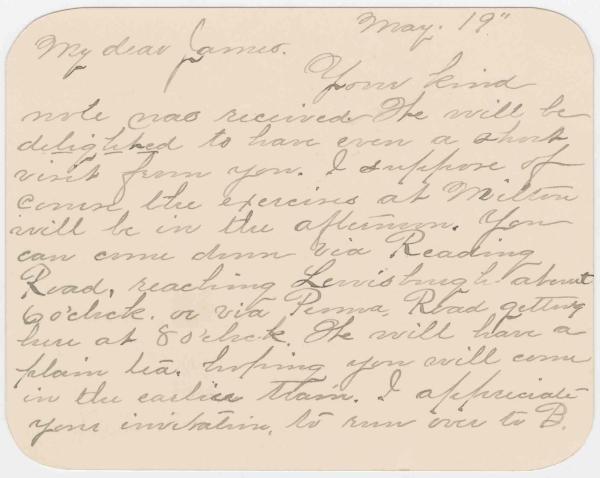 May. 19"
My dear James.
Your kind
note was received We will be
delighted to have even a short
visit from you. I suppose of
course the exercises at Milton
will be in the afternoon. You
can come down via Reading
Road, reaching Lewisburgh about
6 o'clock. or via Penna. Road getting
here at 8 o'clock. We will have a
plain tea. hoping you will come
in the earlier train. I appreciate
your invitation, to run over to B.